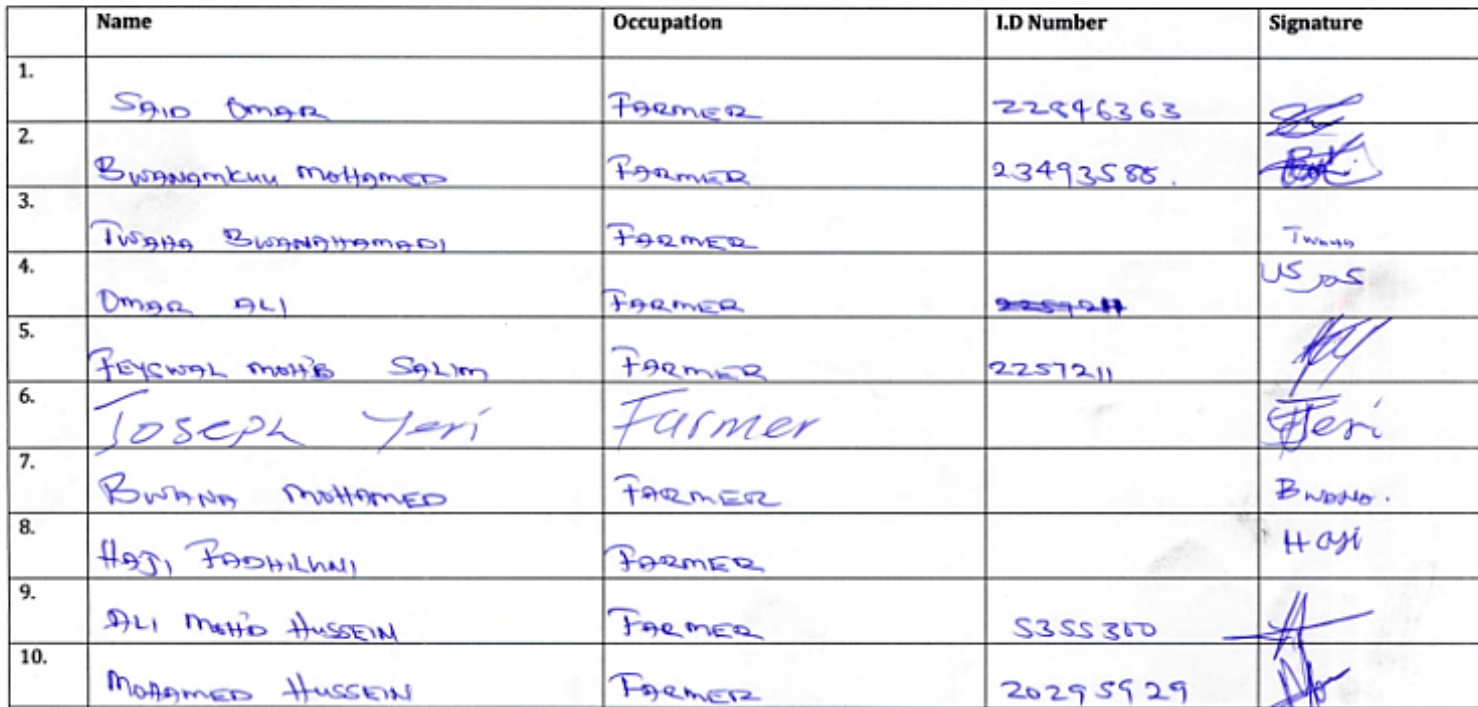 Name Occupation I.D Number Signature
1. SAID OMAR FARMER 22846363
2. BWANAMKUU MOHAMED FARMER 23493588.
3. TWAHA BWANAHAMADI FARMER Twaha
4. OMAR ALI FARMER 2257211
5. FEYSWAL MOH'D SALIM FARMER 2257211
6. Joseph Yeri Farmer Jeri
7. BWANA MOHAMED FARMER Bwana.
8. HAJI FADHILUNI FARMER Haji
9. ALI MOH'D HUSSEIN FARMER 5355300
10. MOHAMED HUSSEIN FARMER 20295929